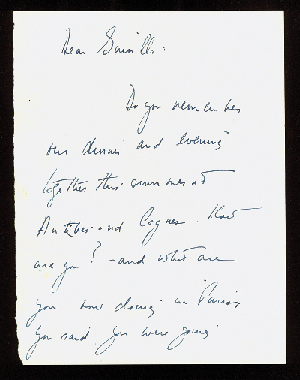 Dear
Do you remember
our dinner and evening
together this summer at
Antibes and Cagnes. How
are you? - and what are
you now doing in Paris
you said you were going